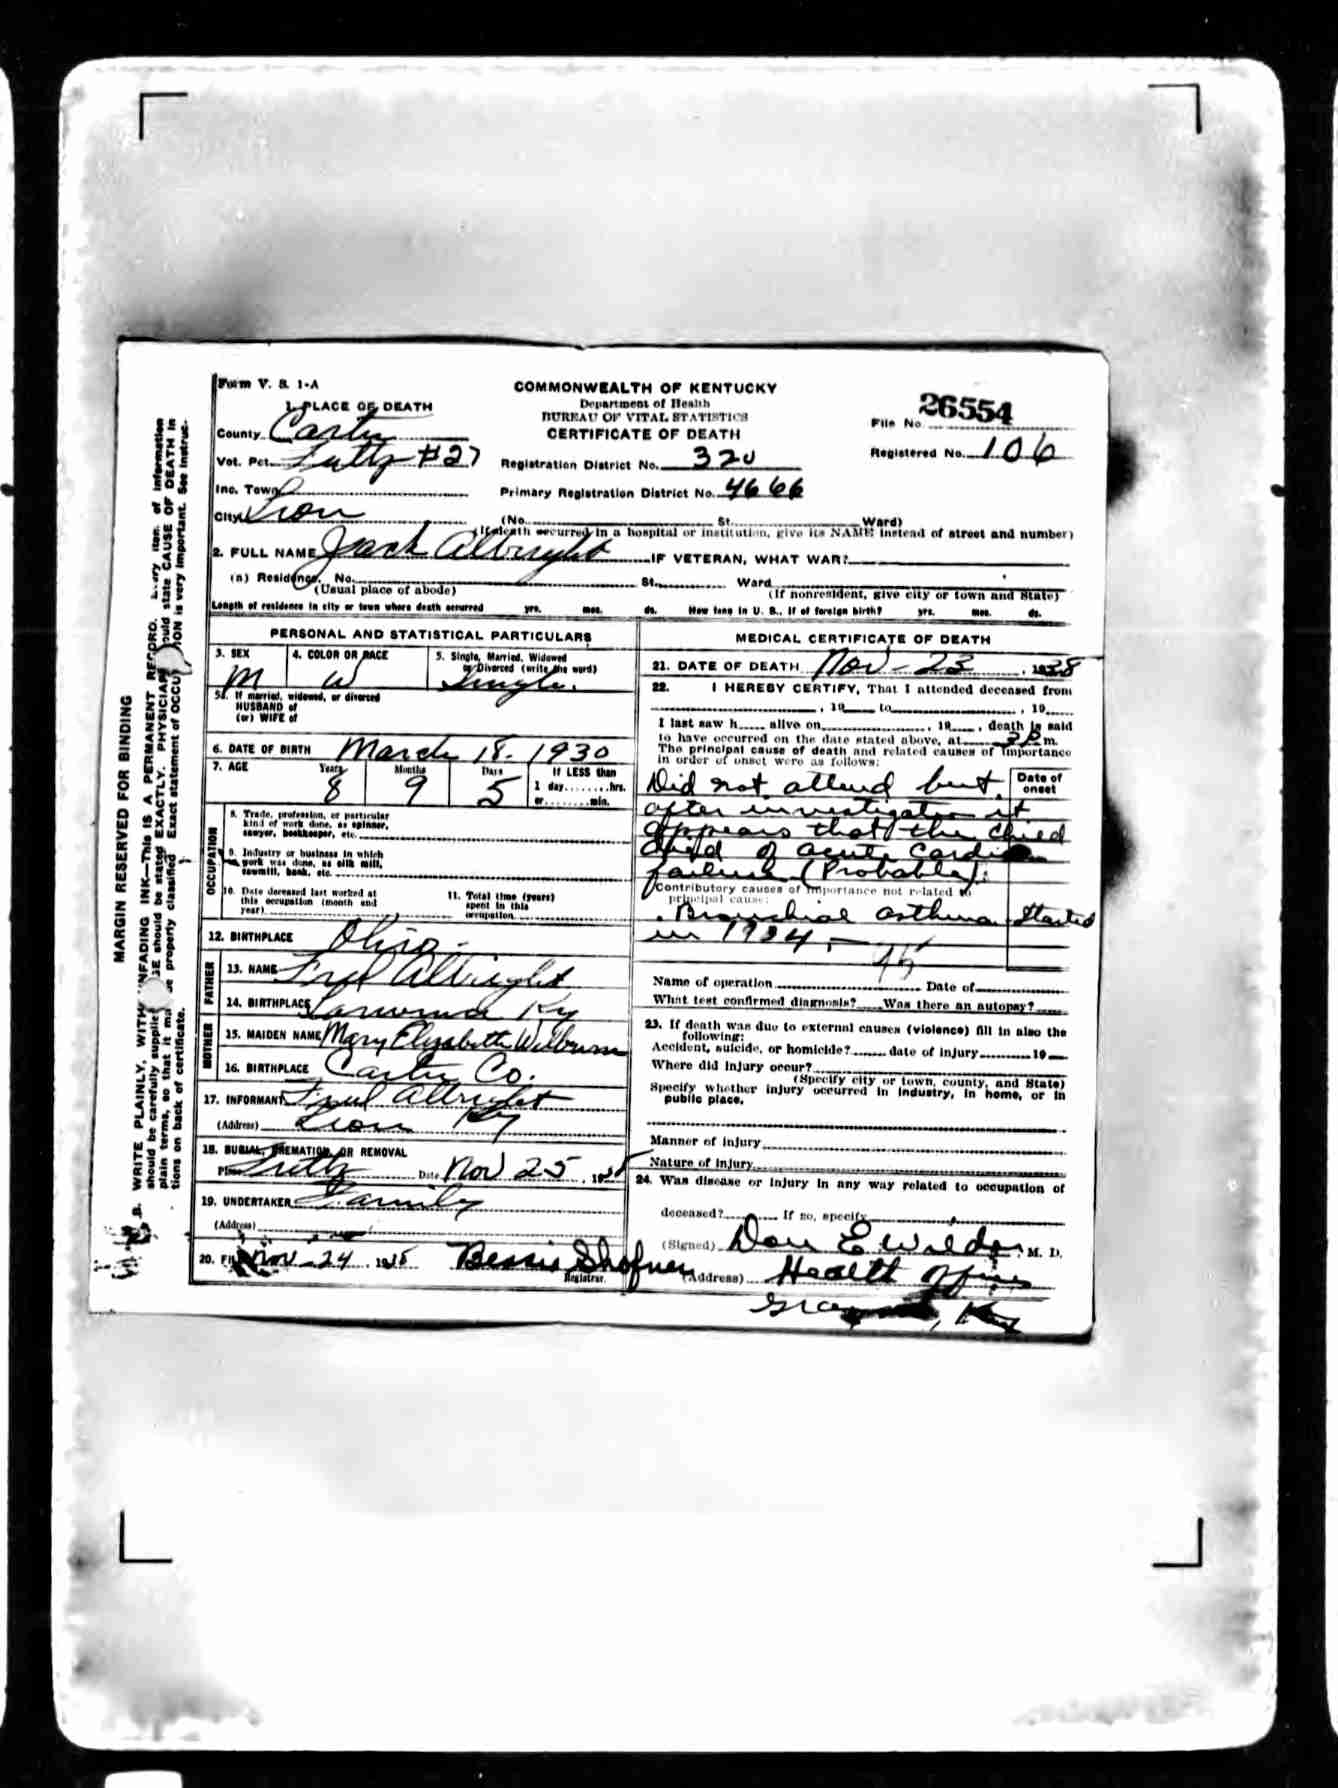 Form V. S. 1-A
COMMONWEALTH OF KENTUCKY
Department of Health
BUREAU OF VITAL STATISTICS
CERTIFICATE OF DEATH
File No. 26554
Registered No. 106
1. PLACE OF DEATH
County Carter
Vot. Pct. Fultz #27
Registration District No. 320
Inc. Town
Primary Registration District No. 4666
City
(No. St. Ward)
(If death occurred in a hospital or institution, give its NAME instead of street and number)
2. FULL NAME Jack Albright IF VETERAN, WHAT WAR?
(a) Residence. No. St. Ward
(Usual place of abode) (If nonresident, give city or town and State)
Length of residence in city or town where death occurred yrs. mos. ds. How long in U. S., if of foreign birth? yrs. mos. ds.
PERSONAL AND STATISTICAL PARTICULARS
3. SEX M
4. COLOR OR RACE W
5. Single, Married, Widowed or Divorced (write the word) Single.
5a. If married, widowed, or divorced
HUSBAND of
(or) WIFE of
6. DATE OF BIRTH March 18. 1930
7. AGE Years 8 Months 9 Days 5 If LESS than 1 day hrs. or min.
OCCUPATION
8. Trade, profession, or particular
kind of work done, as spinner,
sawyer, bookkeeper, etc.
9. Industry or business in which
work was done, as silk mill,
sawmill, bank, etc.
10. Date deceased last worked at
this occupation (month and
year)
11. Total time (years)
spent in this
occupation
12. BIRTHPLACE Ohio -
FATHER
13. NAME Fred Albright
14. BIRTHPLACE Ky
MOTHER
15. MAIDEN NAME Mary Elizabeth Wilburn
16. BIRTHPLACE Carter Co.
17. INFORMANT Fred Albright
(Address) Ky
18. BURIAL, CREMATION, OR REMOVAL
Place Fultz Date Nov 25, 1938
19. UNDERTAKER Family
(Address)
20. FILED Nov - 24 1938 Bessie Shofner
Registrar.
MEDICAL CERTIFICATE OF DEATH
21. DATE OF DEATH Nov - 23, 1938
22. I HEREBY CERTIFY, That I attended deceased from
, 19 to , 19
I last saw h alive on , 19 , death is said
to have occurred on the date stated above, at m.
The principal cause of death and related causes of importance
in order of onset were as follows:
Date of onset
Did not attend but
after investigation it
appears that the child
died of acute cardiac
failure (Probable).
Contributory causes of importance not related to
principal cause:
Bronchial asthma started
in 1934 -
Name of operation Date of
What test confirmed diagnosis? Was there an autopsy?
23. If death was due to external causes (violence) fill in also the
following:
Accident, suicide, or homicide? date of injury 19
Where did injury occur?
(Specify city or town, county, and State)
Specify whether injury occurred in industry, in home, or in
public place.
Manner of injury
Nature of injury
24. Was disease or injury in any way related to occupation of
deceased? If so, specify
(Signed) Don E Wilder, M. D.
(Address) Health Officer
Grayson, Ky
MARGIN RESERVED FOR BINDING
WRITE PLAINLY, WITH UNFADING INK—THIS IS A PERMANENT RECORD. Every item of information
should be carefully supplied. AGE should be stated EXACTLY. PHYSICIANS should state CAUSE OF DEATH in
plain terms, so that it may be properly classified. Exact statement of OCCUPATION is very important. See instruc-
tions on back of certificate.